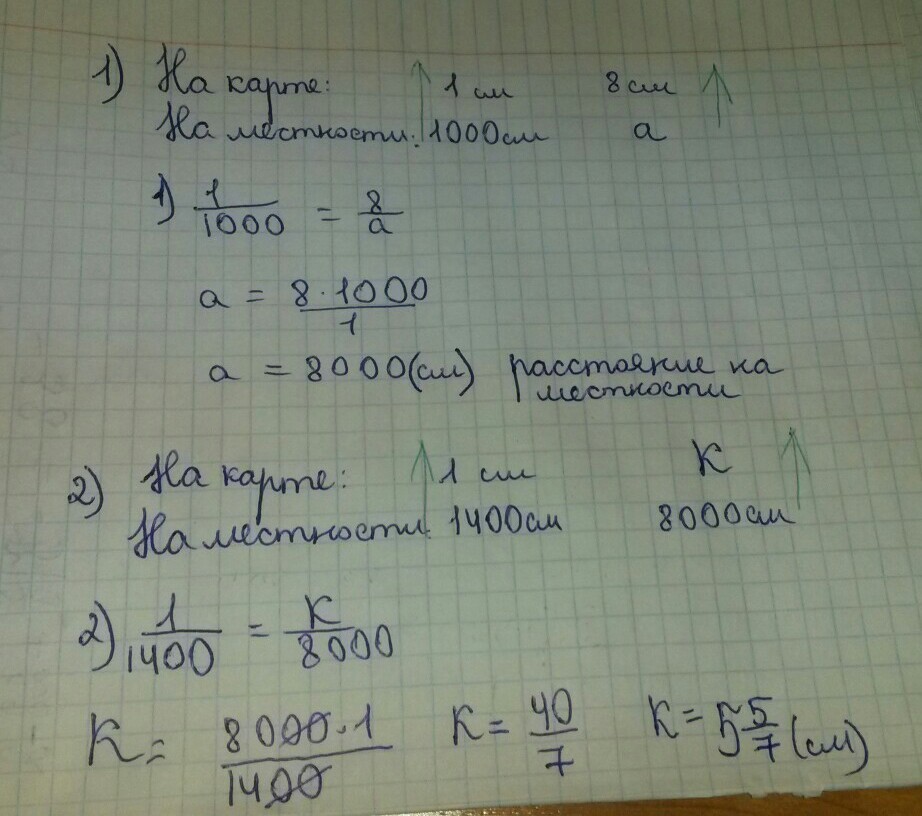 1) На карте: 1 см 8 см
На местности: 1000см а
1) 1/1000 = 8/а
а = 8·1000/1
а = 8000(см) расстояние на
местности
2) На карте: 1 см К
На местности: 1400см 8000см
2) 1/1400 = К/8000
К = 8000·1/1400 К = 40/7 К = 5 5/7 (см)